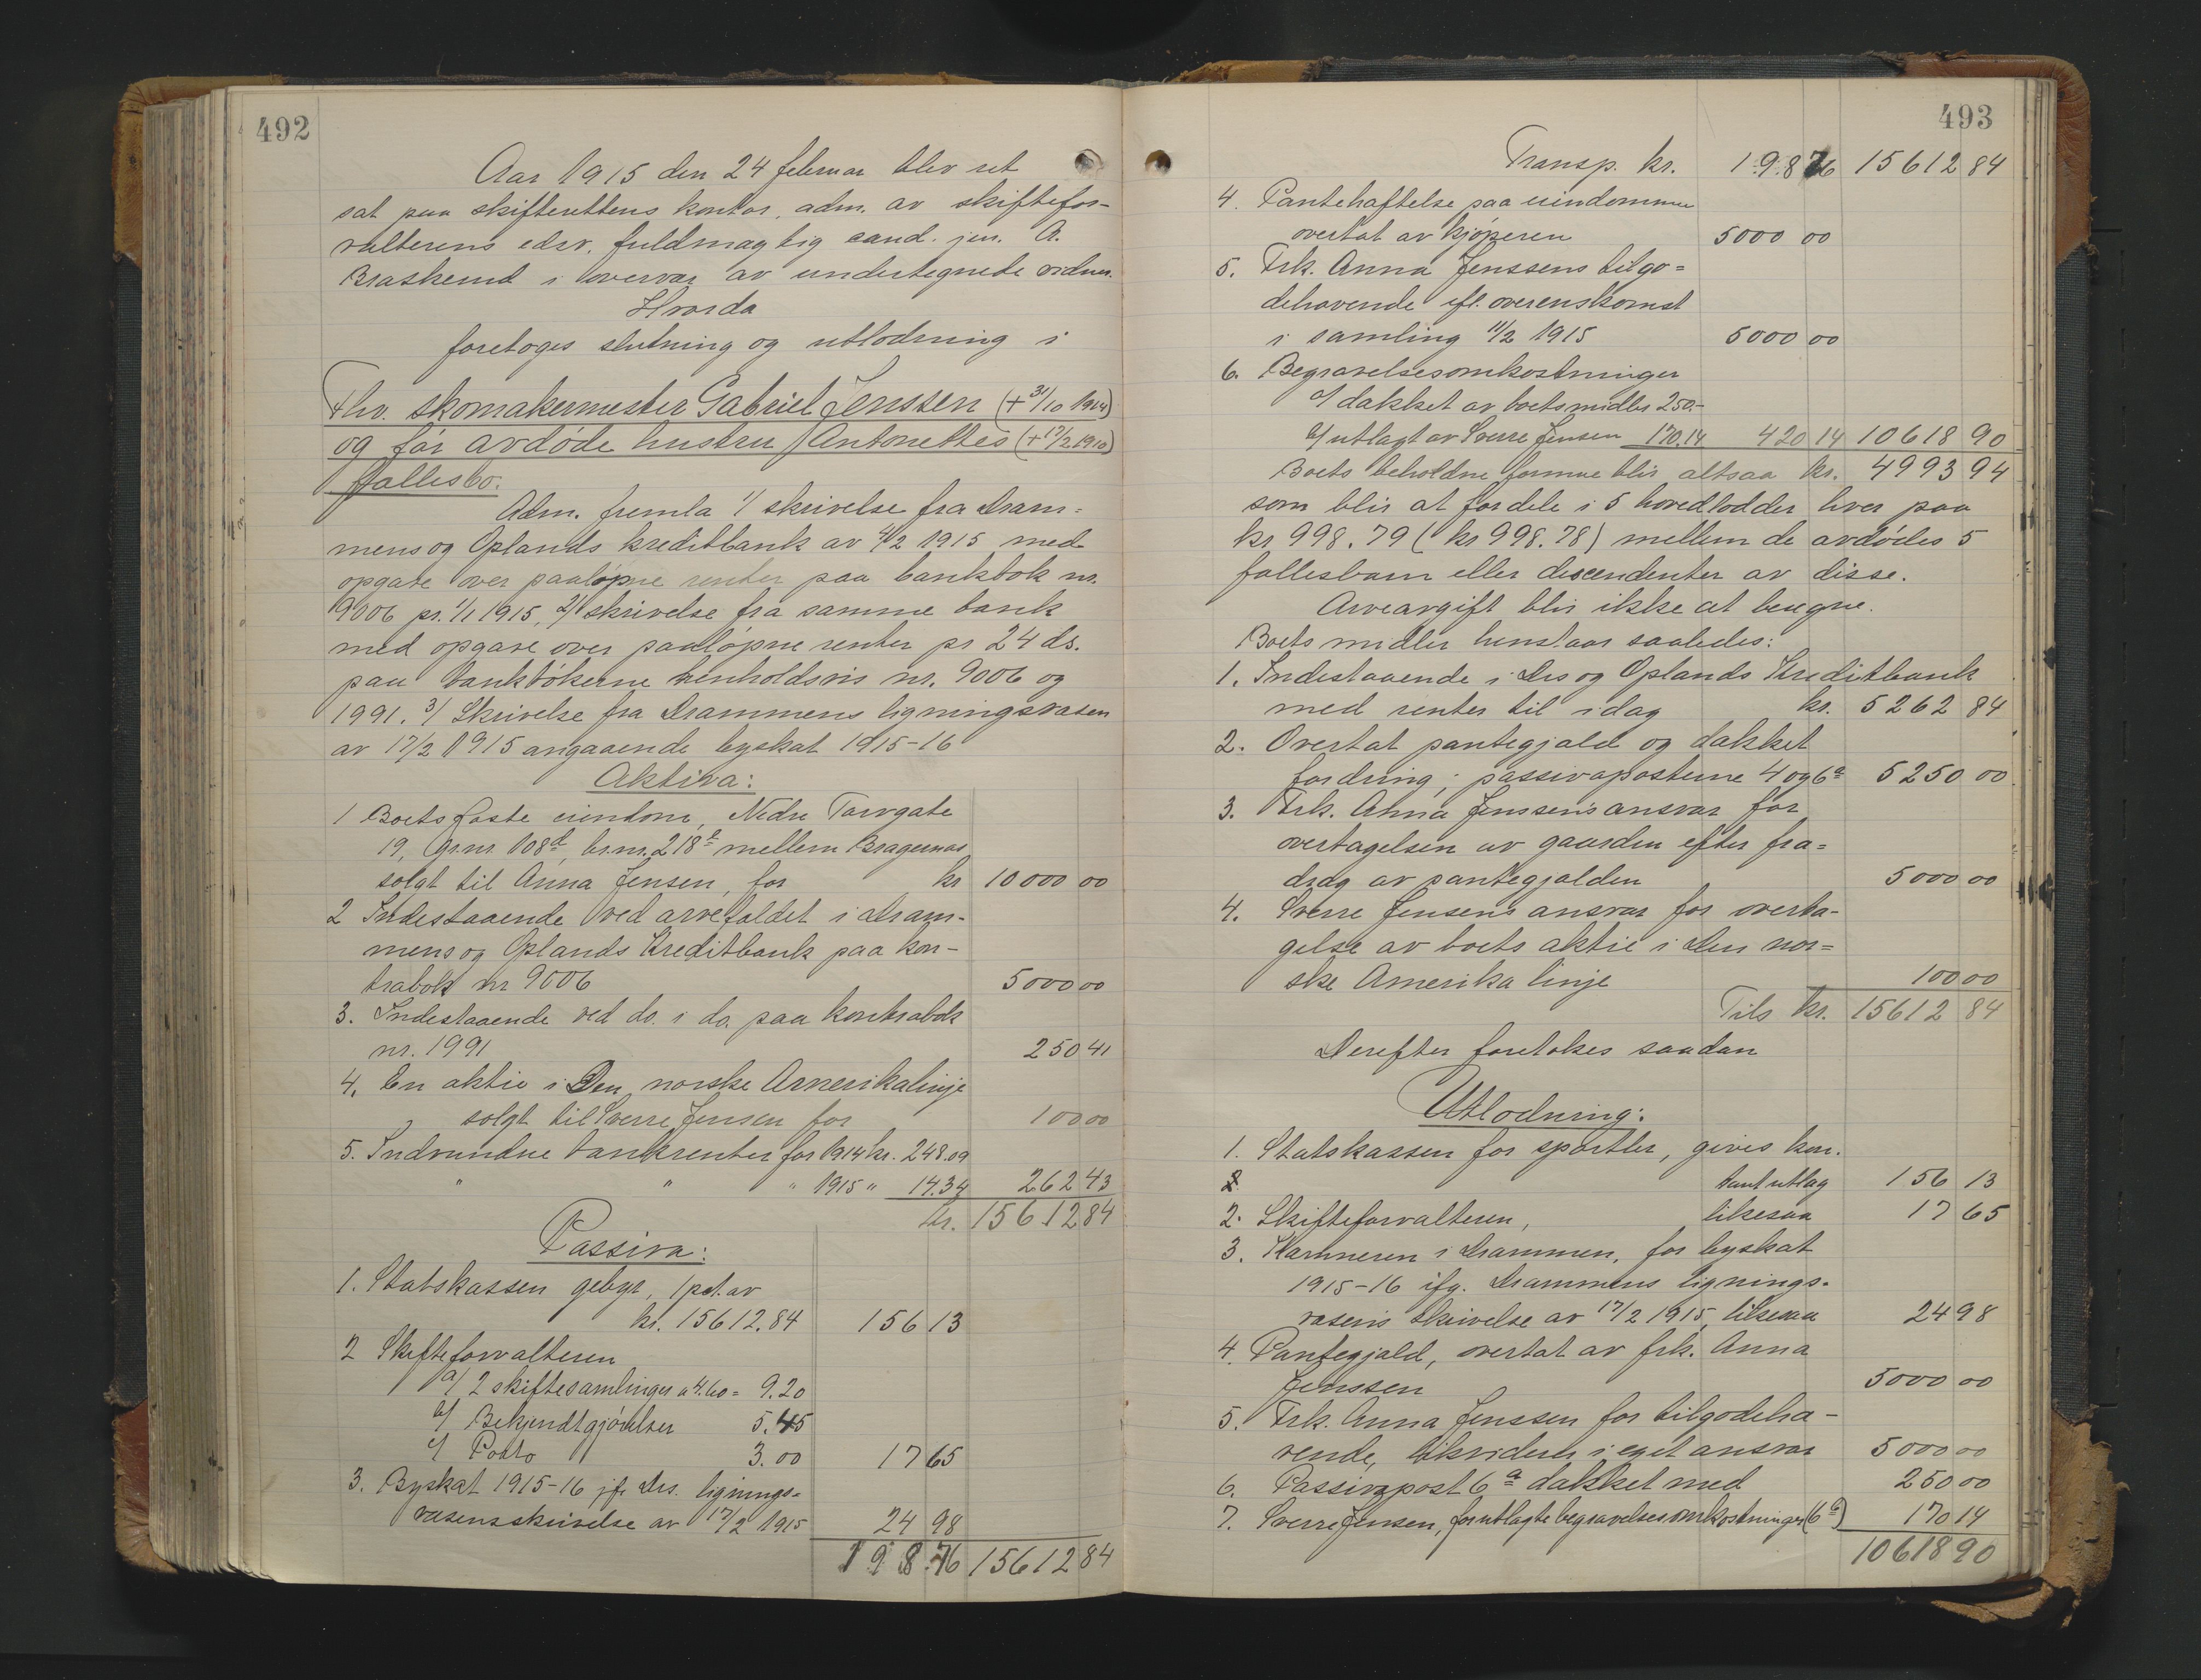 492
Aar 1915 den 24 februar blev ret
sat paa skifterettens kontor, adm. av skiftefor-
valterens edsv. fuldmægtig cand. jur. A.
Braskerud i overvær av undertegnede vidner.
Hvorda
foretoges slutning og utlodning i
Fhv. skomakermester Gabriel Jenssen (+ 31/10 1914)
og før avdøde hustru Antonettes (+ 17/2 1910)
fællesbo.
Adm. fremla 1/ skrivelse fra Dram=
mens og Oplands kreditbank av 4/2 1915 med
opgave over paaløpne renter paa bankbok nr.
9006 pr. 1/1 1915, 2/ skrivelse fra samme bank
med opgave over paaløpne renter pr 24 ds.
paa bankbøkerne henholdsvis nr. 9006 og
1991. 3/ Skrivelse fra Drammens ligningsvæsen
av 17/2 1915 angaaende byskat 1915-16
Aktiva:
1 Boets faste eiendom, Nedre Torvgate
19, Gr.nr. 108d, br.nr. 218b mellem Bragernæs
solgt til Anna Jensen, for kr 10000 00
2 Indestaaende ved arvefaldet i Dram-
mens og Oplands Kreditbank paa kon-
trabok nr 9006 5000 00
3. Indestaaende ved do. i do. paa kontrabok
nr. 1991 250 41
4. En aktie i Den norske Amerikalinje
solgt til Sverre Jensen for 100 00
5. Indvundne bankrenter for 1914 kr. 248.09
" " " 1915 " 14.34 262 43
Kr. 15612 84
Passiva:
1. Statskassen gebyr, 1 pct. av
kr. 15612.84 156 13
2 Skifteforvalteren
a/ 2 skiftesamlinger a 4.60 = 9.20
b/ Bekjendtgjørelser 5.45
c/ Porto 3.00 17 65
3. Byskat 1915-16 jfr. Drs. lignings=
væsens skrivelse av 17/2 1915 24 98
198 76 15612 84
493
Transp. kr. 198 76 15612 84
4. Pantehæftelse paa eiendommen
overtat av kjøperen 5000 00
5. Frk. Anna Jenssens tilgo=
dehavende efl. overenskomst
i samling 11/2 1915 5000 00
6. Begravelsesomkostninger
a/ dækket av boets midler 250.-
b/ utlagt av Sverre Jensen 170.14 420 14 10618 90
Boets beholdne formue blir altsaa kr. 4993 94
som blir at fordele i 5 hovedlodder hver paa
kr 998.79 (kr 998.78) mellem de avdødes 5
fællesbarn eller descendenter av disse.
Arveavgift blir ikke at beregne.
Boets midler henstaar saaledes:
1. Indestaaende i Drs og Oplands Kreditbank
med renter til idag kr. 5262 84
2. Overtat pantegjæld og dækket
fordring; passivaposterne 4 og 6a 5250 00
3. Frk. Anna Jenssens ansvar for
overtagelsen av gaarden efter fra=
drag av pantegjælden 5000 00
4. Sverre Jensens ansvar for overta-
gelse av boets aktie i Den nor=
ske Amerika linje 100 00
Tils kr. 15612 84
Derefter foretokes saadan
Utlodning:
1. Statskassen for sportler, gives kon.
tant utlag 156 13
2. Skifteforvalteren, likesaa 17 65
3. Kæmneren i Drammen, for byskat
1915-16 ifg. Drammens lignings-
væsens skrivelse av 17/2 1915, likesaa 24 98
4. Pantegjæld, overtat av frk. Anna
Jenssen 5000 00
5. Frk. Anna Jenssen for tilgodeha-
vende, likvideres i eget ansvar 5000 00
6. Passivapost 6a dækket med 250 00
7. Sverre Jensen, for utlagte begravelsesomkostninger (6b) 170 14
10618 90